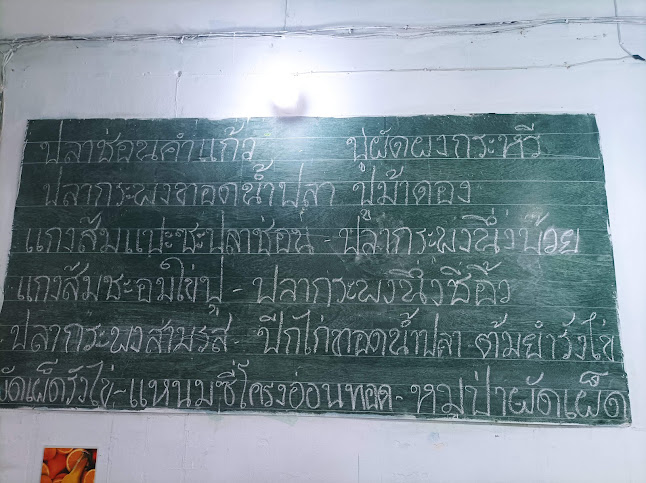 ปลาช่อนคำแก้ว ปูผัดผงกระหรี่
ปลากระพงทอดน้ำปลา ปูม้าดอง
แกงส้มแปะซะปลาช่อน - ปลากระพงนึ่งบ๊วย
แกงส้มชะอมไข่ปู - ปลากระพงนึ่งซีอิ้ว
ปลากระพงสามรส - ปีกไก่ทอดน้ำปลา ต้มยำรังไข่
ผัดเผ็ดรังไข่ - แหนมซี่โครงอ่อนทอด - หมูป่าผัดเผ็ด